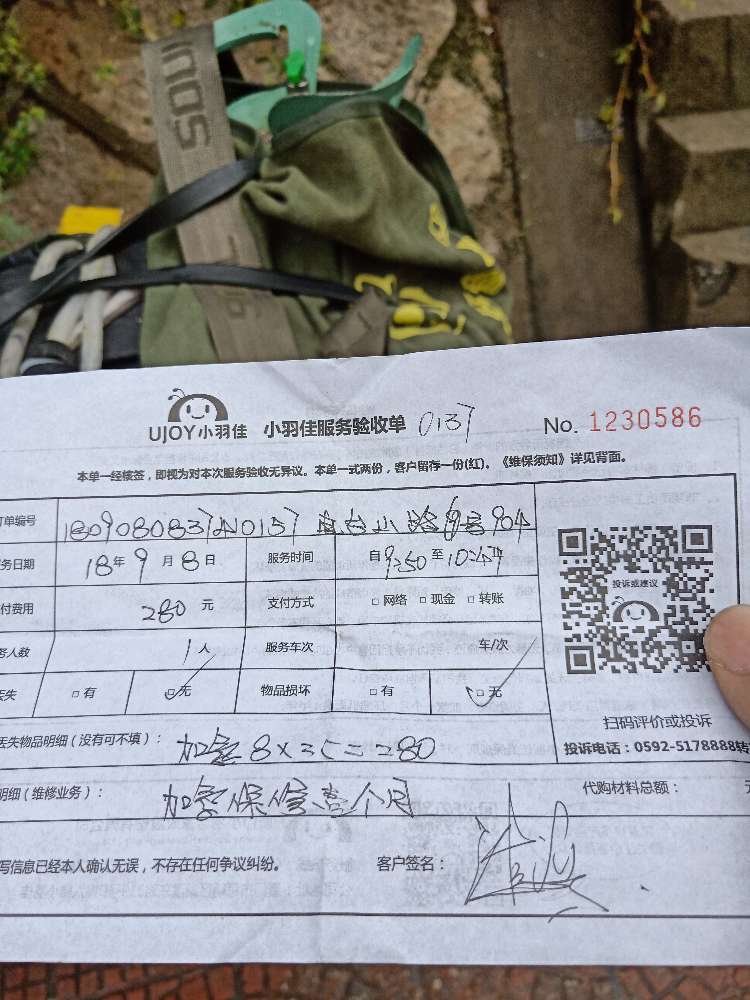 UJOY小羽佳 小羽佳服务验收单 0137 No. 1230586
本单一经核签，即视为对本次服务验收无异议。本单一式两份，客户留存一份(红)。《维保须知》详见背面。
单编号 180908083720137 904
务日期 18年9月8日 服务时间 自9:50至10:47
付费用 280元 支付方式 □网络 □现金 □转账
务人数 1人 服务车次 车/次
丢失 □有 □无 物品损坏 □有 □无
投诉或建议
扫码评价或投诉
投诉电话：0592-5178888转
丢失物品明细（没有可不填）： 加 8×35=280
明细（维修业务）： 加 保修壹个月 代购材料总额： 元
写信息已经本人确认无误，不存在任何争议纠纷。 客户签名：